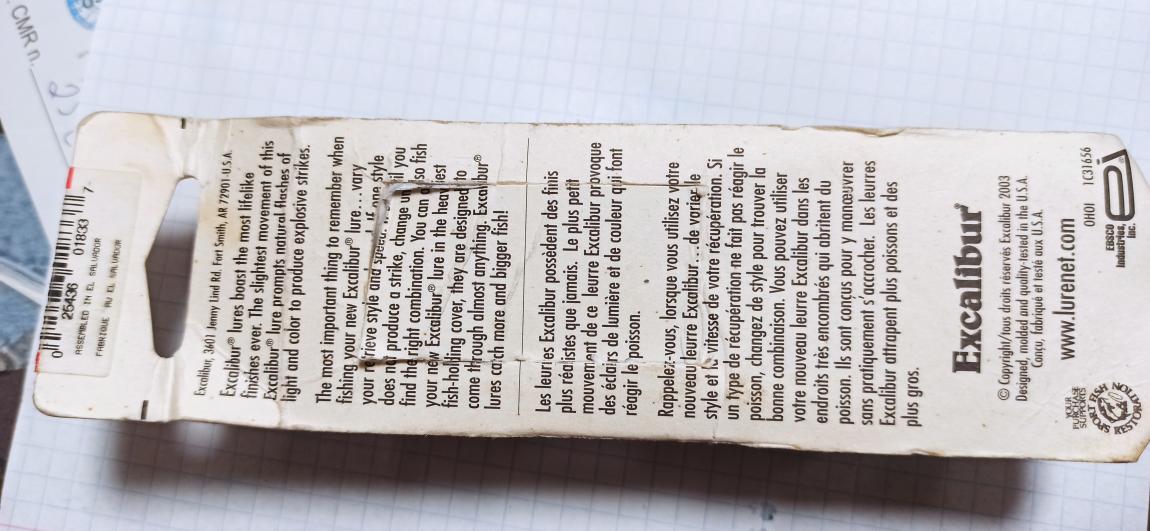 CMR n.
0 26436 01833 7
ASSEMBLED IN EL SALVADOR
FABRIQUE AU EL SALVADOR
Excalibur, 3601 Jenny Lind Rd. Fort Smith, AR 72901-U.S.A.
Excalibur® lures boast the most lifelike
finishes ever. The slightest movement of this
Excalibur® lure prompts natural flashes of
light and color to produce explosive strikes.
The most important thing to remember when
fishing your new Excalibur® lure...vary
your retrieve style and speed. If one style
does produce a strike, change you
find the right combination. You can so fish
your new Excalibur® lure in the heaviest
fish-holding cover, they are designed to
come through almost anything. Excalibur®
lures catch more and bigger fish!
Les leurres Excalibur possèdent des finis
plus réalistes que jamais. Le plus petit
mouvement de ce leurre Excalibur provoque
des éclairs de lumière et de couleur qui font
réagir le poisson.
Rappelez-vous, lorsque vous utilisez votre
nouveau leurre Excalibur...de varier le
style et la vitesse de votre récupération. Si
un type de récupération ne fait pas réagir le
poisson, changez de style pour trouver la
bonne combinaison. Vous pouvez utiliser
votre nouveau leurre Excalibur dans les
endroits très encombrés qui abritent du
poisson. Ils sont conçus pour y manœuvrer
sans pratiquement s'accrocher. Les leurres
Excalibur attrapent plus poissons et des
plus gros.
Excalibur®
© Copyright/tous droits réservés Excalibur 2003
Designed, molded and quality-tested in the U.S.A.
Conçu, fabriqué et testé aux U.S.A.
www.lurenet.com
YOUR
PURCHASE
SUPPORTS
SPORT FISH RESTORATION
OHOI 1C31656
EBSCO
Industries,
Inc.